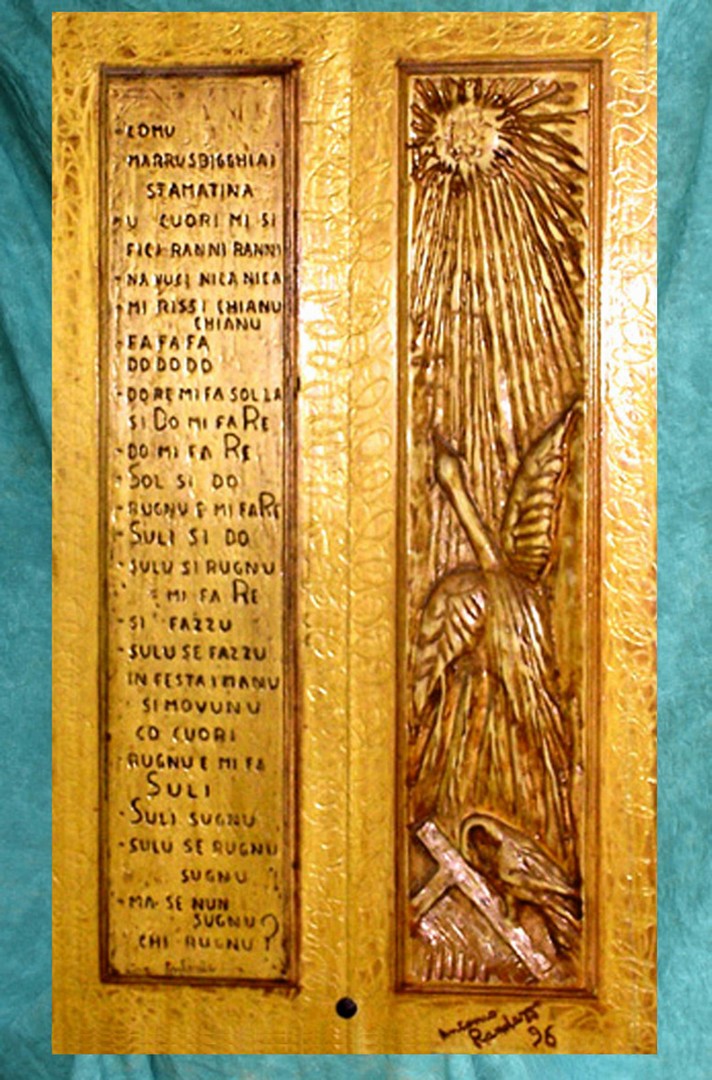 - COMU
- MARRUSBIGGHIAI
STAMATINA
- U CUORI MI SI
FICI RANNI RANNI
- NA VUCI NICA NICA
- MI RISSI CHIANU
CHIANU
- FA FA FA
DO DO DO
- DO RE MI FA SOL LA
SI DO MI FA RE
- DO MI FA RE
- SOL SI DO
- RUGNU E MI FA RE
- SULI SI DO
- SULU SI RUGNU
E MI FA RE
- SI FAZZU
- SULU SE FAZZU
IN FESTA I MANU
SI MOVUNU
CO CUORI
- RUGNU E MI FA
SULI
- SULI SUGNU
- SULU SE RUGNU
SUGNU
- MA SE NUN
SUGNU?
CHI RUGNU?
Antonio
Randazzo
96